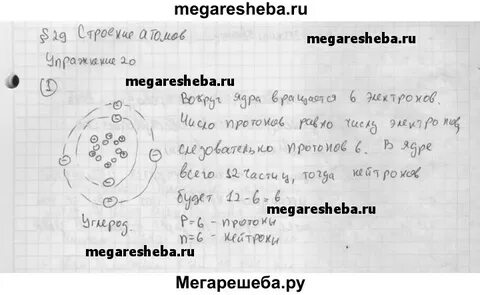 megaresheba.ru
§29 Строение атомов
Упражнение 20
megaresheba.ru
megaresheba.ru
①
Вокруг ядра вращается 6 электронов.
Число протонов равно числу электронов,
следовательно протонов 6. В ядре
всего 12 частиц, тогда нейтронов
будет 12-6=6
Углерод.
P=6 - протоки
n=6 - нейтроки
megaresheba.ru
megaresheba.ru
Мегарешеба.ру